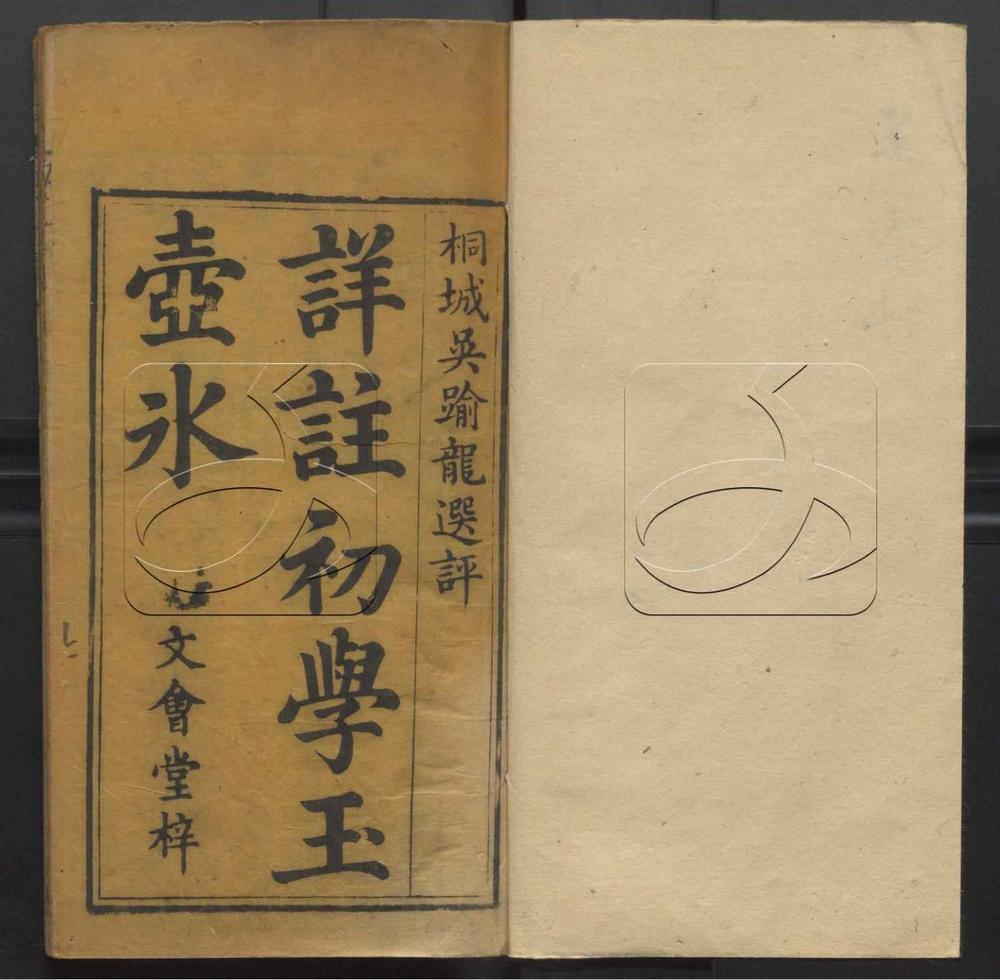 桐城吳踰龍選評
詳註初學玉
壺冰
文會堂梓